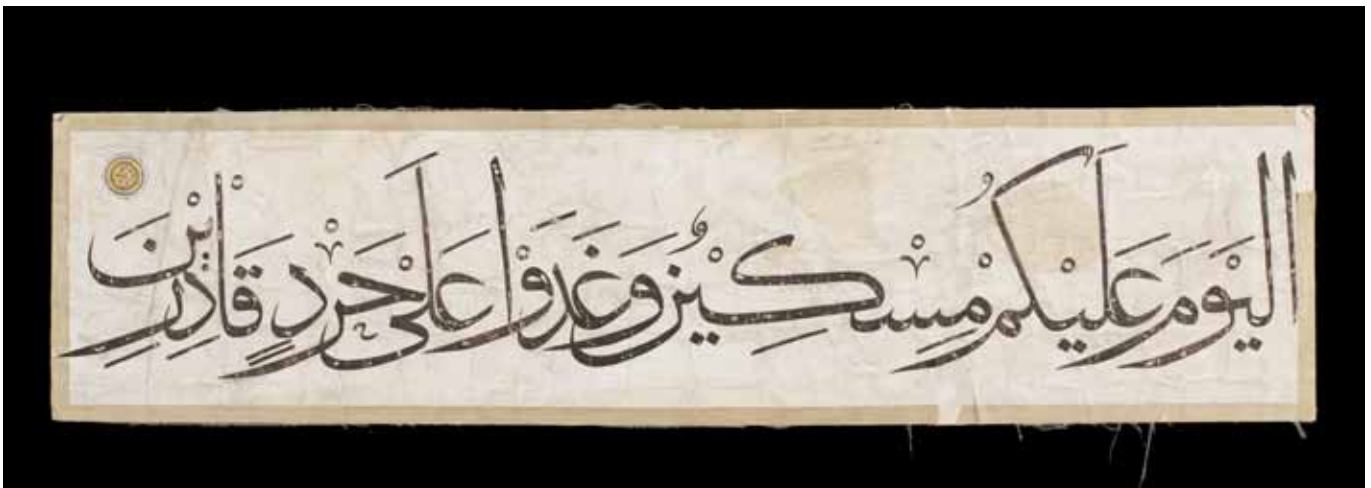 الْيَوْمَ عَلَيْكُمْ مِسْكِيْنٌ وَغَدَوْا عَلَى حَرْدٍ قَادِرِيْنَ